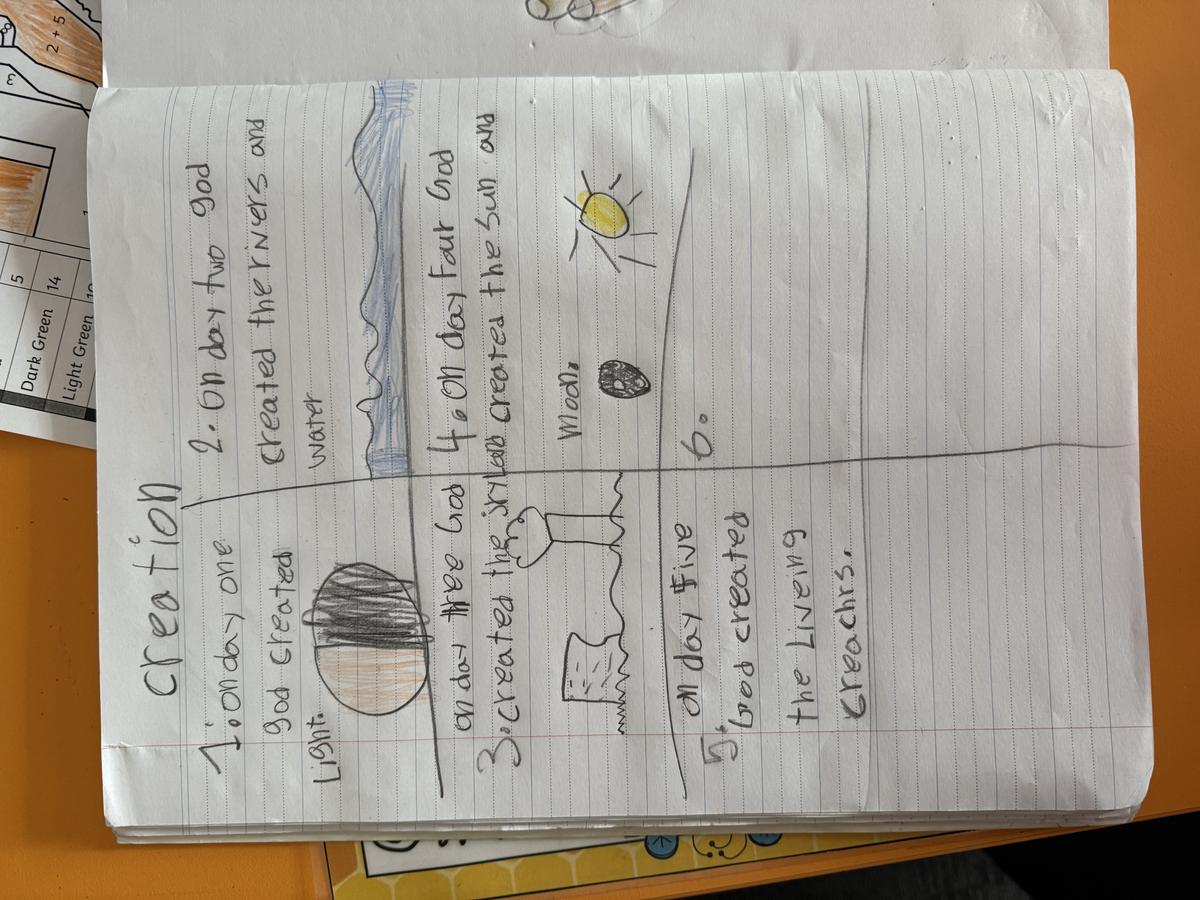 Creation
1. on day one
god created
Light.
2. On day two god
created the rivers and
water
on day three God
3. created the dryland
4. On day Four God
created the Sun and
Moon.
on day Five
5. God created
the Liveing
creachrs.
6.
5
Dark Green 14
Light Green
2 + 5
3